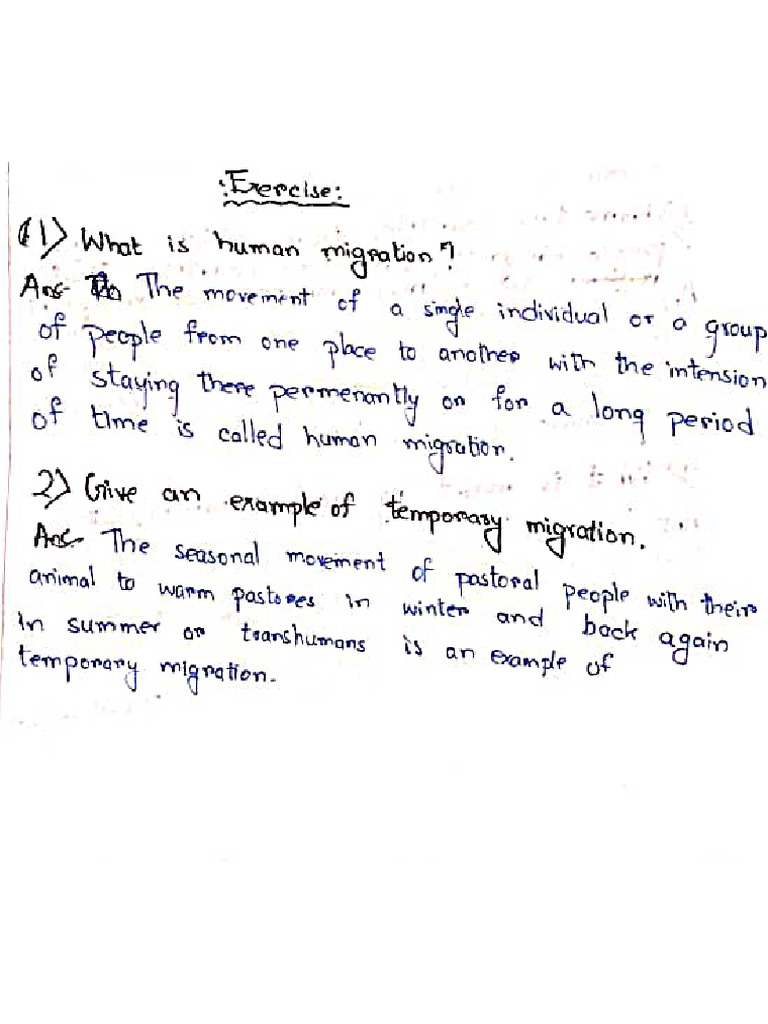 Exercise:
(1) What is human migration?
Ans- The movement of a single individual or a group
of people from one place to another with the intension
of staying there permenantly or for a long period
of time is called human migration.
2) Give an example of temporary migration.
Ans- The seasonal movement of pastoral people with their
animal to warm pastores in winter and back again
in summer or transhumans is an example of
temporary migration.